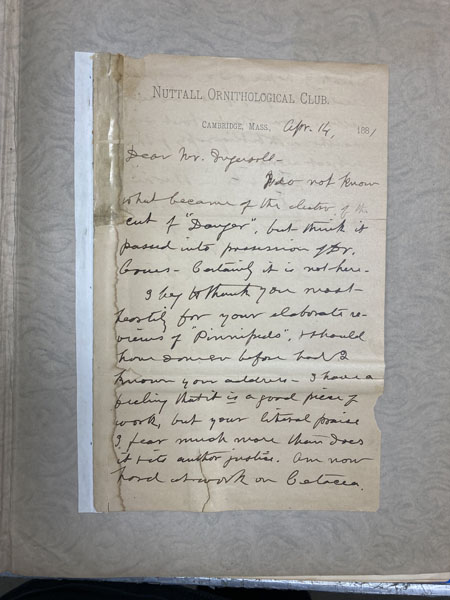 NUTTALL ORNITHOLOGICAL CLUB.
CAMBRIDGE, MASS., Apr. 14, 1881
Dear Mr. Ingersoll -
I do not know
what became of the electro of the
cut of "Danger", but think it
passed into possession of Dr.
Coues - Certainly it is not here -
I beg to thank you most
heartily for your elaborate re-
views of "Pinnipeds", & should
have done so before had I
known your address - I have a
feeling that it is a good piece of
work, but your liberal praise
I fear much more than does
it & its author justice. Am now
hard at work on Cetacea.